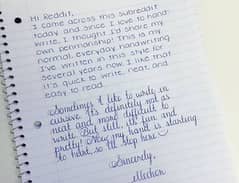 Hi Reddit,
I came across this subreddit
today and since I love to hand-
write, I thought I'd share my
own penmanship! This is my
normal, everyday handwriting.
I've written in this style for
several years now. I like that
it's quick to write, neat, and
easy to read.
Sometimes I like to write in
cursive. It's definitely not as
neat and more difficult to
write. But still, it's fun and
pretty! Now my hand is starting
to hurt, so I'll stop here.
Sincerely,